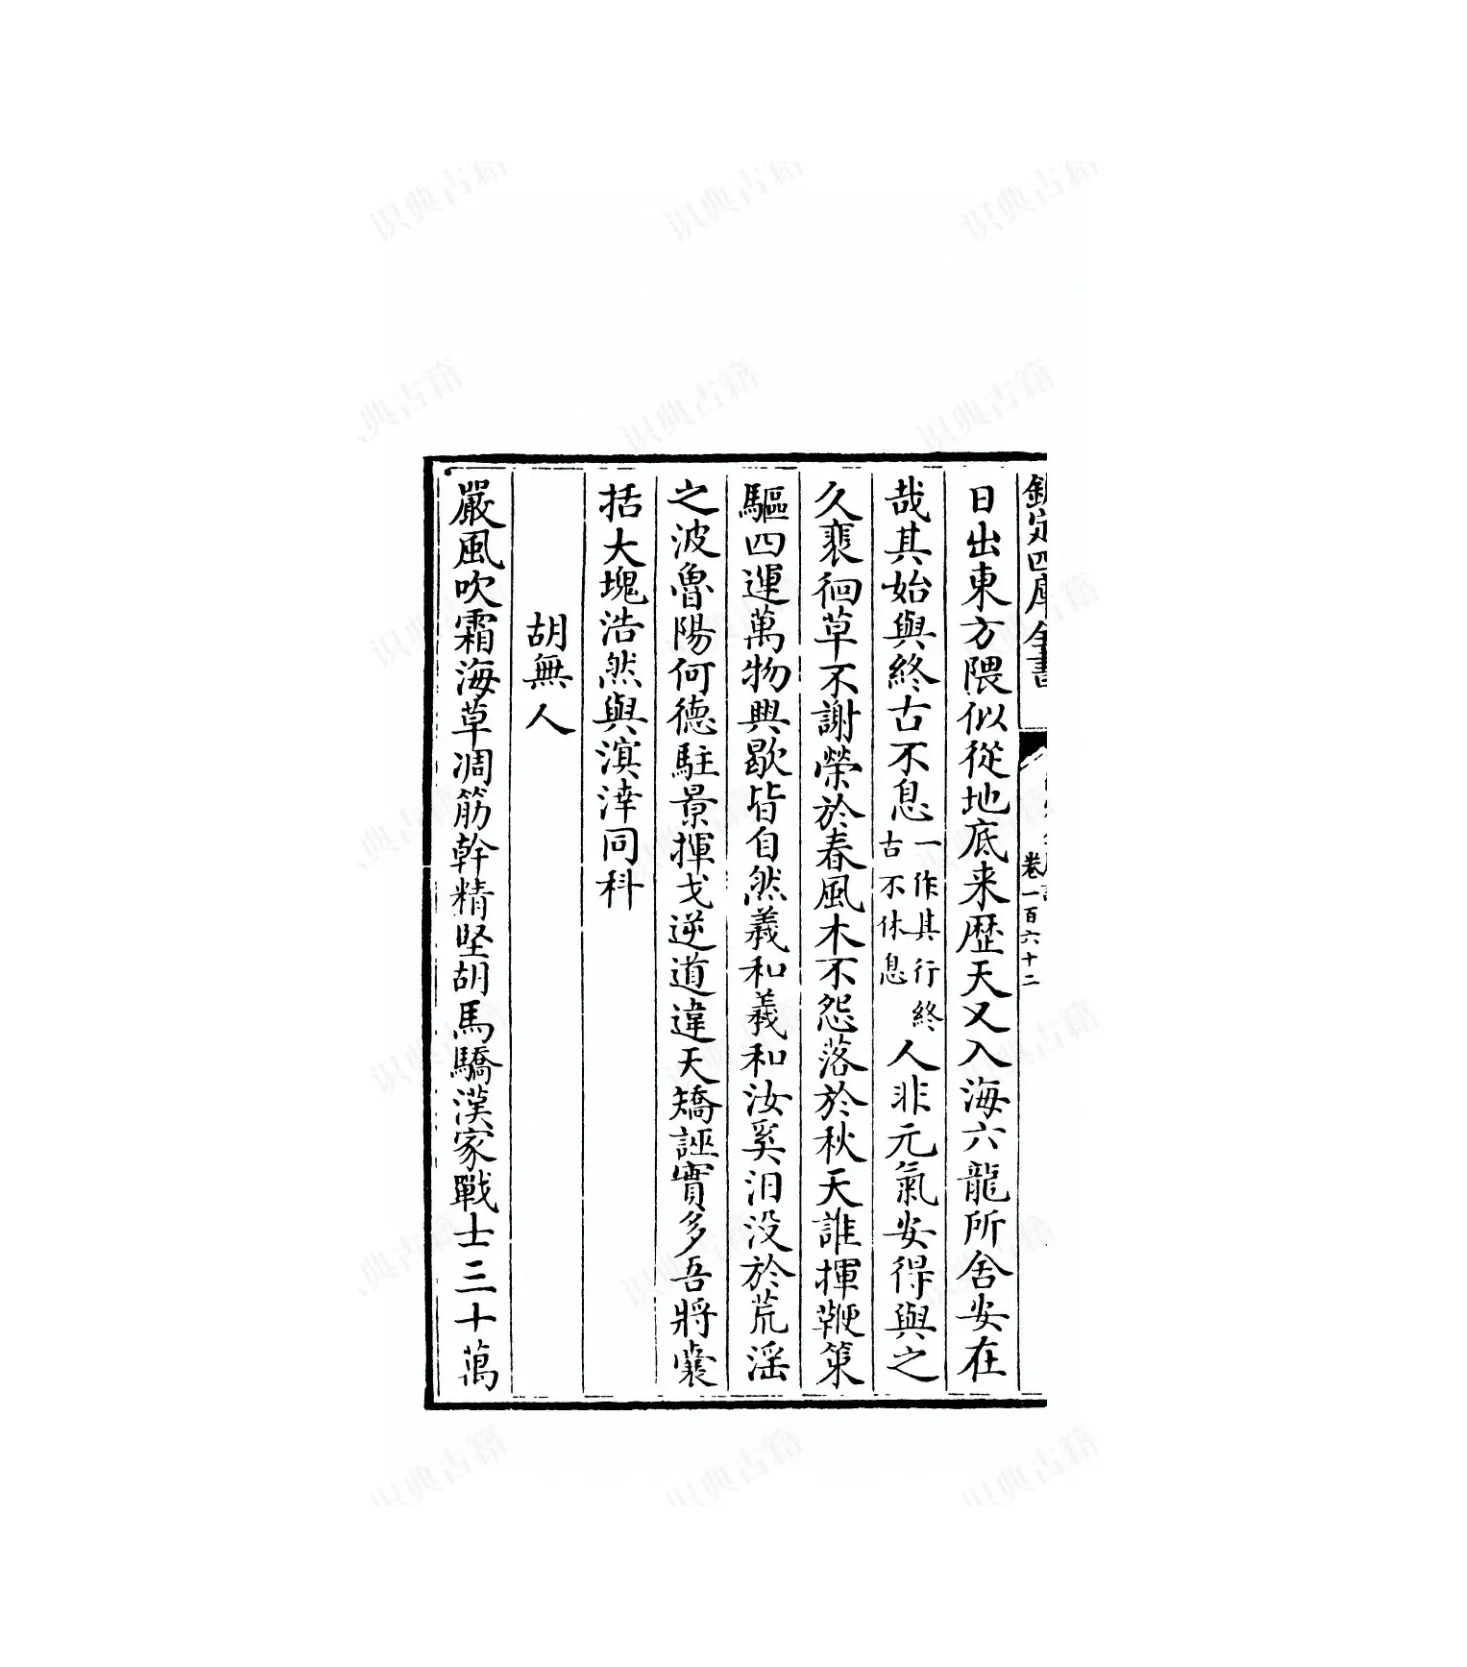 欽定四庫全書
卷一百六十二
日出東方隈似從地底来歴天又入海六龍所舍安在
哉其始與終古不息一作其行終古不休息人非元氣安得與之
久裴徊草不謝榮於春風木不怨落於秋天誰揮鞭策
驅四運萬物興歇皆自然義和義和汝奚汩没於荒滛
之波魯陽何德駐景揮戈逆道違天矯誣實多吾將囊
括大塊浩然與溟涬同科
胡無人
嚴風吹霜海草凋筋幹精堅胡馬驕漢家戰士三十萬
识典古籍